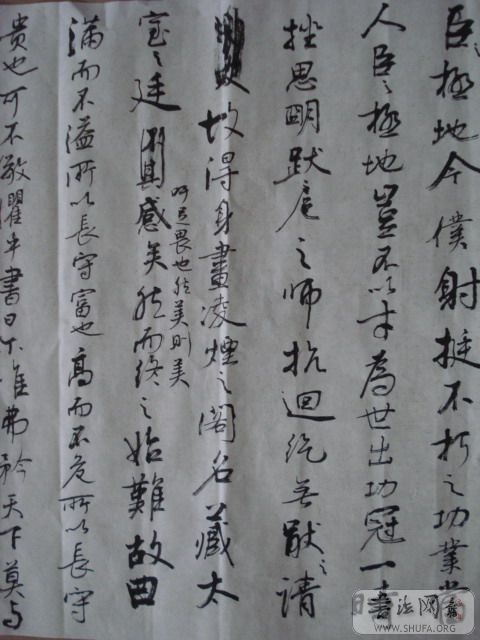 臣極地今僕射挺不朽之功業當
人臣之極地豈不以才為世出功冠一時
挫思明跋扈之師抗迴紇無厭之請
故得身畫凌煙之閣名藏太
室之廷 感矣然而終之始難故曰
吁足畏也然美則美
滿而不溢所以長守富也高而不危所以長守
貴也可不儆懼乎書曰不惟弗矜天下莫与
書法网
WWW.SHUFA.ORG